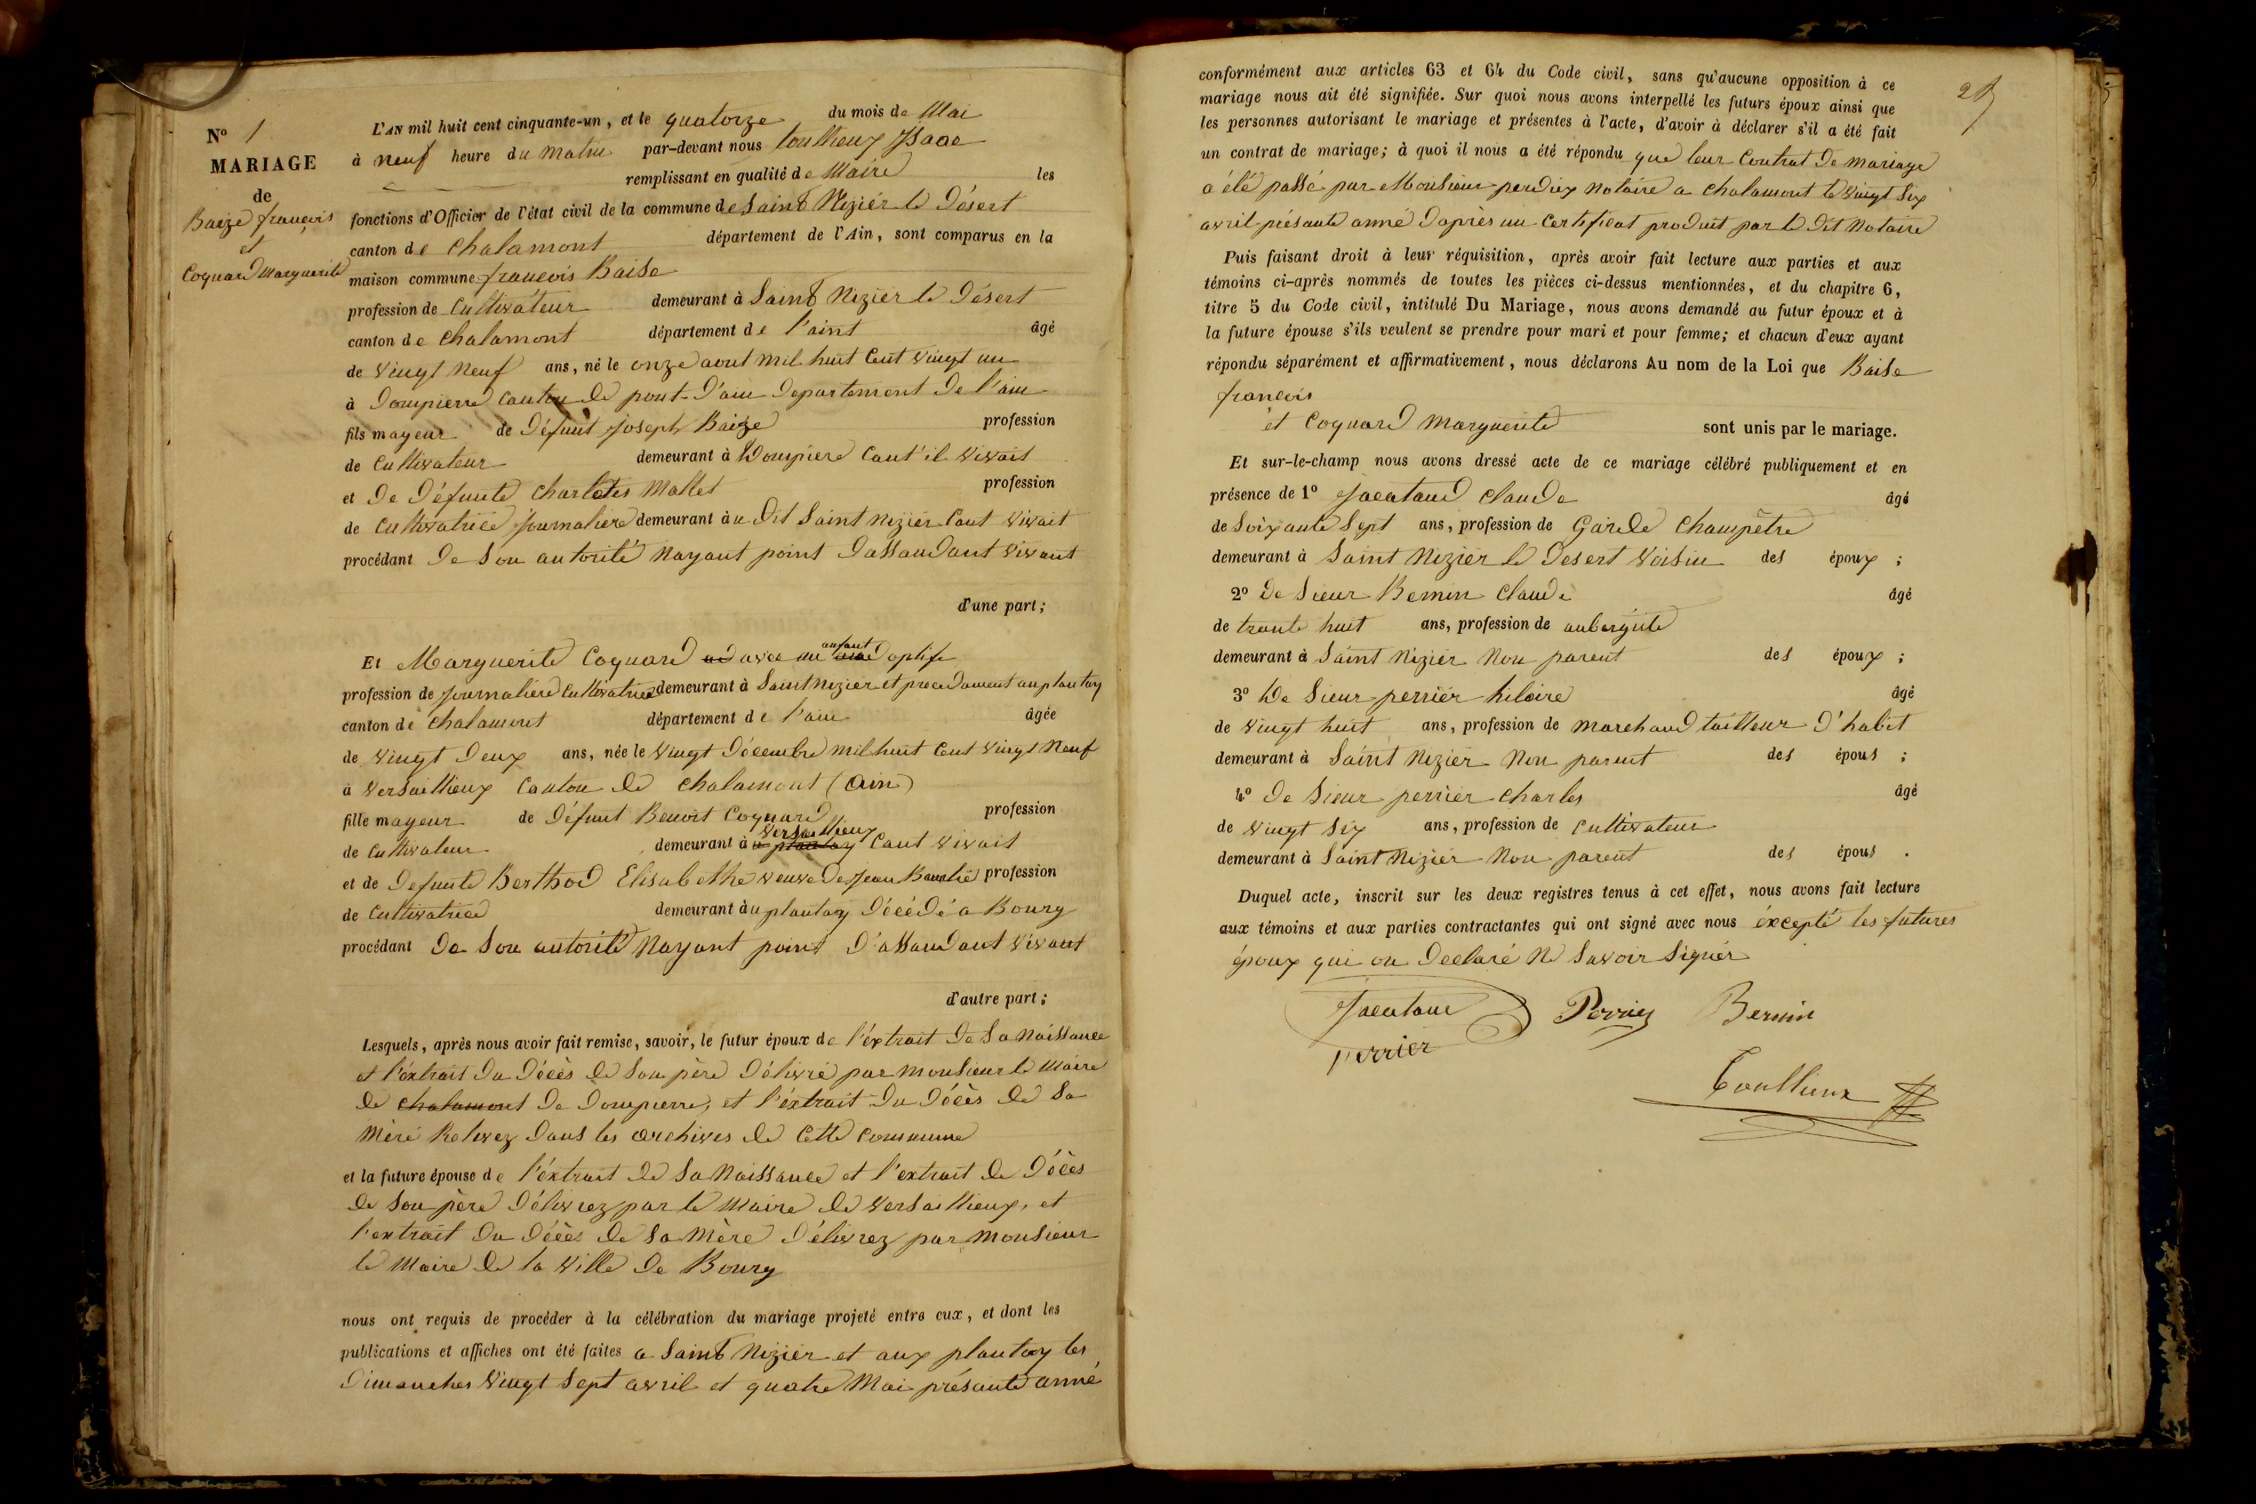 N° 1
MARIAGE
de
Baize françois
et
Coquard Marguerite
L'AN mil huit cent cinquante-un, et le quatorze du mois de Mai
à neuf heure du matin par-devant nous Isaac
remplissant en qualité de Maire les
fonctions d'Officier de l'état civil de la commune de Saint Nizier le Désert
canton de Chalamont département de l'Ain, sont comparus en la
maison commune françois Baise
profession de Cultivateur demeurant à Saint Nizier le Désert
canton de Chalamont département de l'aint âgé
de vingt neuf ans, né le onze aout mil huit Cent vingt un
à Dompierre Canton de pont-d'ain Departement de l'ain
fils mayeur de Défunt Joseph Baize profession
de Cultivateur demeurant à Dompierre Cant'il vivait
et de Défunte Mallet profession
de Cultivatrice Journaliere demeurant au Dit Saint Nizier Cant vivait
procédant de Son autorité Nayant point Dassandant vivant
d'une part;
Et Marguerite Coquard enfant adoptife
profession de Journaliere Cultivatrice demeurant à Saint Nizier et precedament au plantay
canton de Chalamont département de l'ain âgée
de vingt Deux ans, née le vingt Décembre mil huit Cent vingt Neuf
à Versaillieux Canton de Chalamont (Ain)
fille mayeur de Défunt Benoit Coquard profession
de Cultivateur demeurant à Versaillieux Cant vivait
et de Defunte Berthod Elisabethe veuve de Jean profession
de Cultivatrice demeurant au plantay Décédé a Bourg
procédant de Son autorité Nayant point D'assandant vivant
d'autre part;
Lesquels, après nous avoir fait remise, savoir, le futur époux de l'éxtrait de Sa Naissance
et l'éxtrait du Décès de Son père Délivré par Monsieur le Maire
de Chalamont De Dompierre, et l'éxtrait du Décès de Sa
Mère Relevez dans les archives de Cette Commune
et la future épouse de l'éxtrait de Sa Naissance et l'extrait de Décès
de Son père Délivrez par le Maire de Versaillieux, et
l'extrait du Décès de Sa Mère Délivrez par Monsieur
le Maire de la Ville de Bourg
nous ont requis de procéder à la célébration du mariage projeté entre eux, et dont les
publications et affiches ont été faites a Saint Nizier et aux plantay les
Dimanches vingt Sept avril et quatre Mai présante anné
conformément aux articles 63 et 64 du Code civil, sans qu'aucune opposition à ce
mariage nous ait été signifiée. Sur quoi nous avons interpellé les futurs époux ainsi que
les personnes autorisant le mariage et présentes à l'acte, d'avoir à déclarer s'il a été fait
un contrat de mariage; à quoi il nous a été répondu que leur Contrat de mariage
a été passé par Monsieur perdrix notaire a Chalamont le vingt Six
avril présante anné Daprès un Certificat produit par le Dit Notaire
Puis faisant droit à leur réquisition, après avoir fait lecture aux parties et aux
témoins ci-après nommés de toutes les pièces ci-dessus mentionnées, et du chapitre 6,
titre 5 du Code civil, intitulé Du Mariage, nous avons demandé au futur époux et à
la future épouse s'ils veulent se prendre pour mari et pour femme; et chacun d'eux ayant
répondu séparément et affirmativement, nous déclarons Au nom de la Loi que Baise
françois
et Coquard Marguerite sont unis par le mariage.
Et sur-le-champ nous avons dressé acte de ce mariage célébré publiquement et en
présence de 1° Jacataud Claude âgé
de Soixante Sept ans, profession de Garde Champêtre
demeurant à Saint Nizier le Desert Voisin des époux ;
2° De Sieur Bernin Claude âgé
de trante huit ans, profession de aubergiste
demeurant à Saint Nizier Non parent des époux ;
3° De Sieur perrier hilaire âgé
de vingt huit ans, profession de marchand tailleur D'habit
demeurant à Saint Nizier Non parent des épous ;
4° De Sieur perrier Charles âgé
de vingt Six ans, profession de Cultivateur
demeurant à Saint Nizier Non parent des épous .
Duquel acte, inscrit sur les deux registres tenus à cet effet, nous avons fait lecture
aux témoins et aux parties contractantes qui ont signé avec nous éxcepté les futures
époux qui on Declaré Ne Savoir Signer
Jacataud Perrier Bernin
Perrier